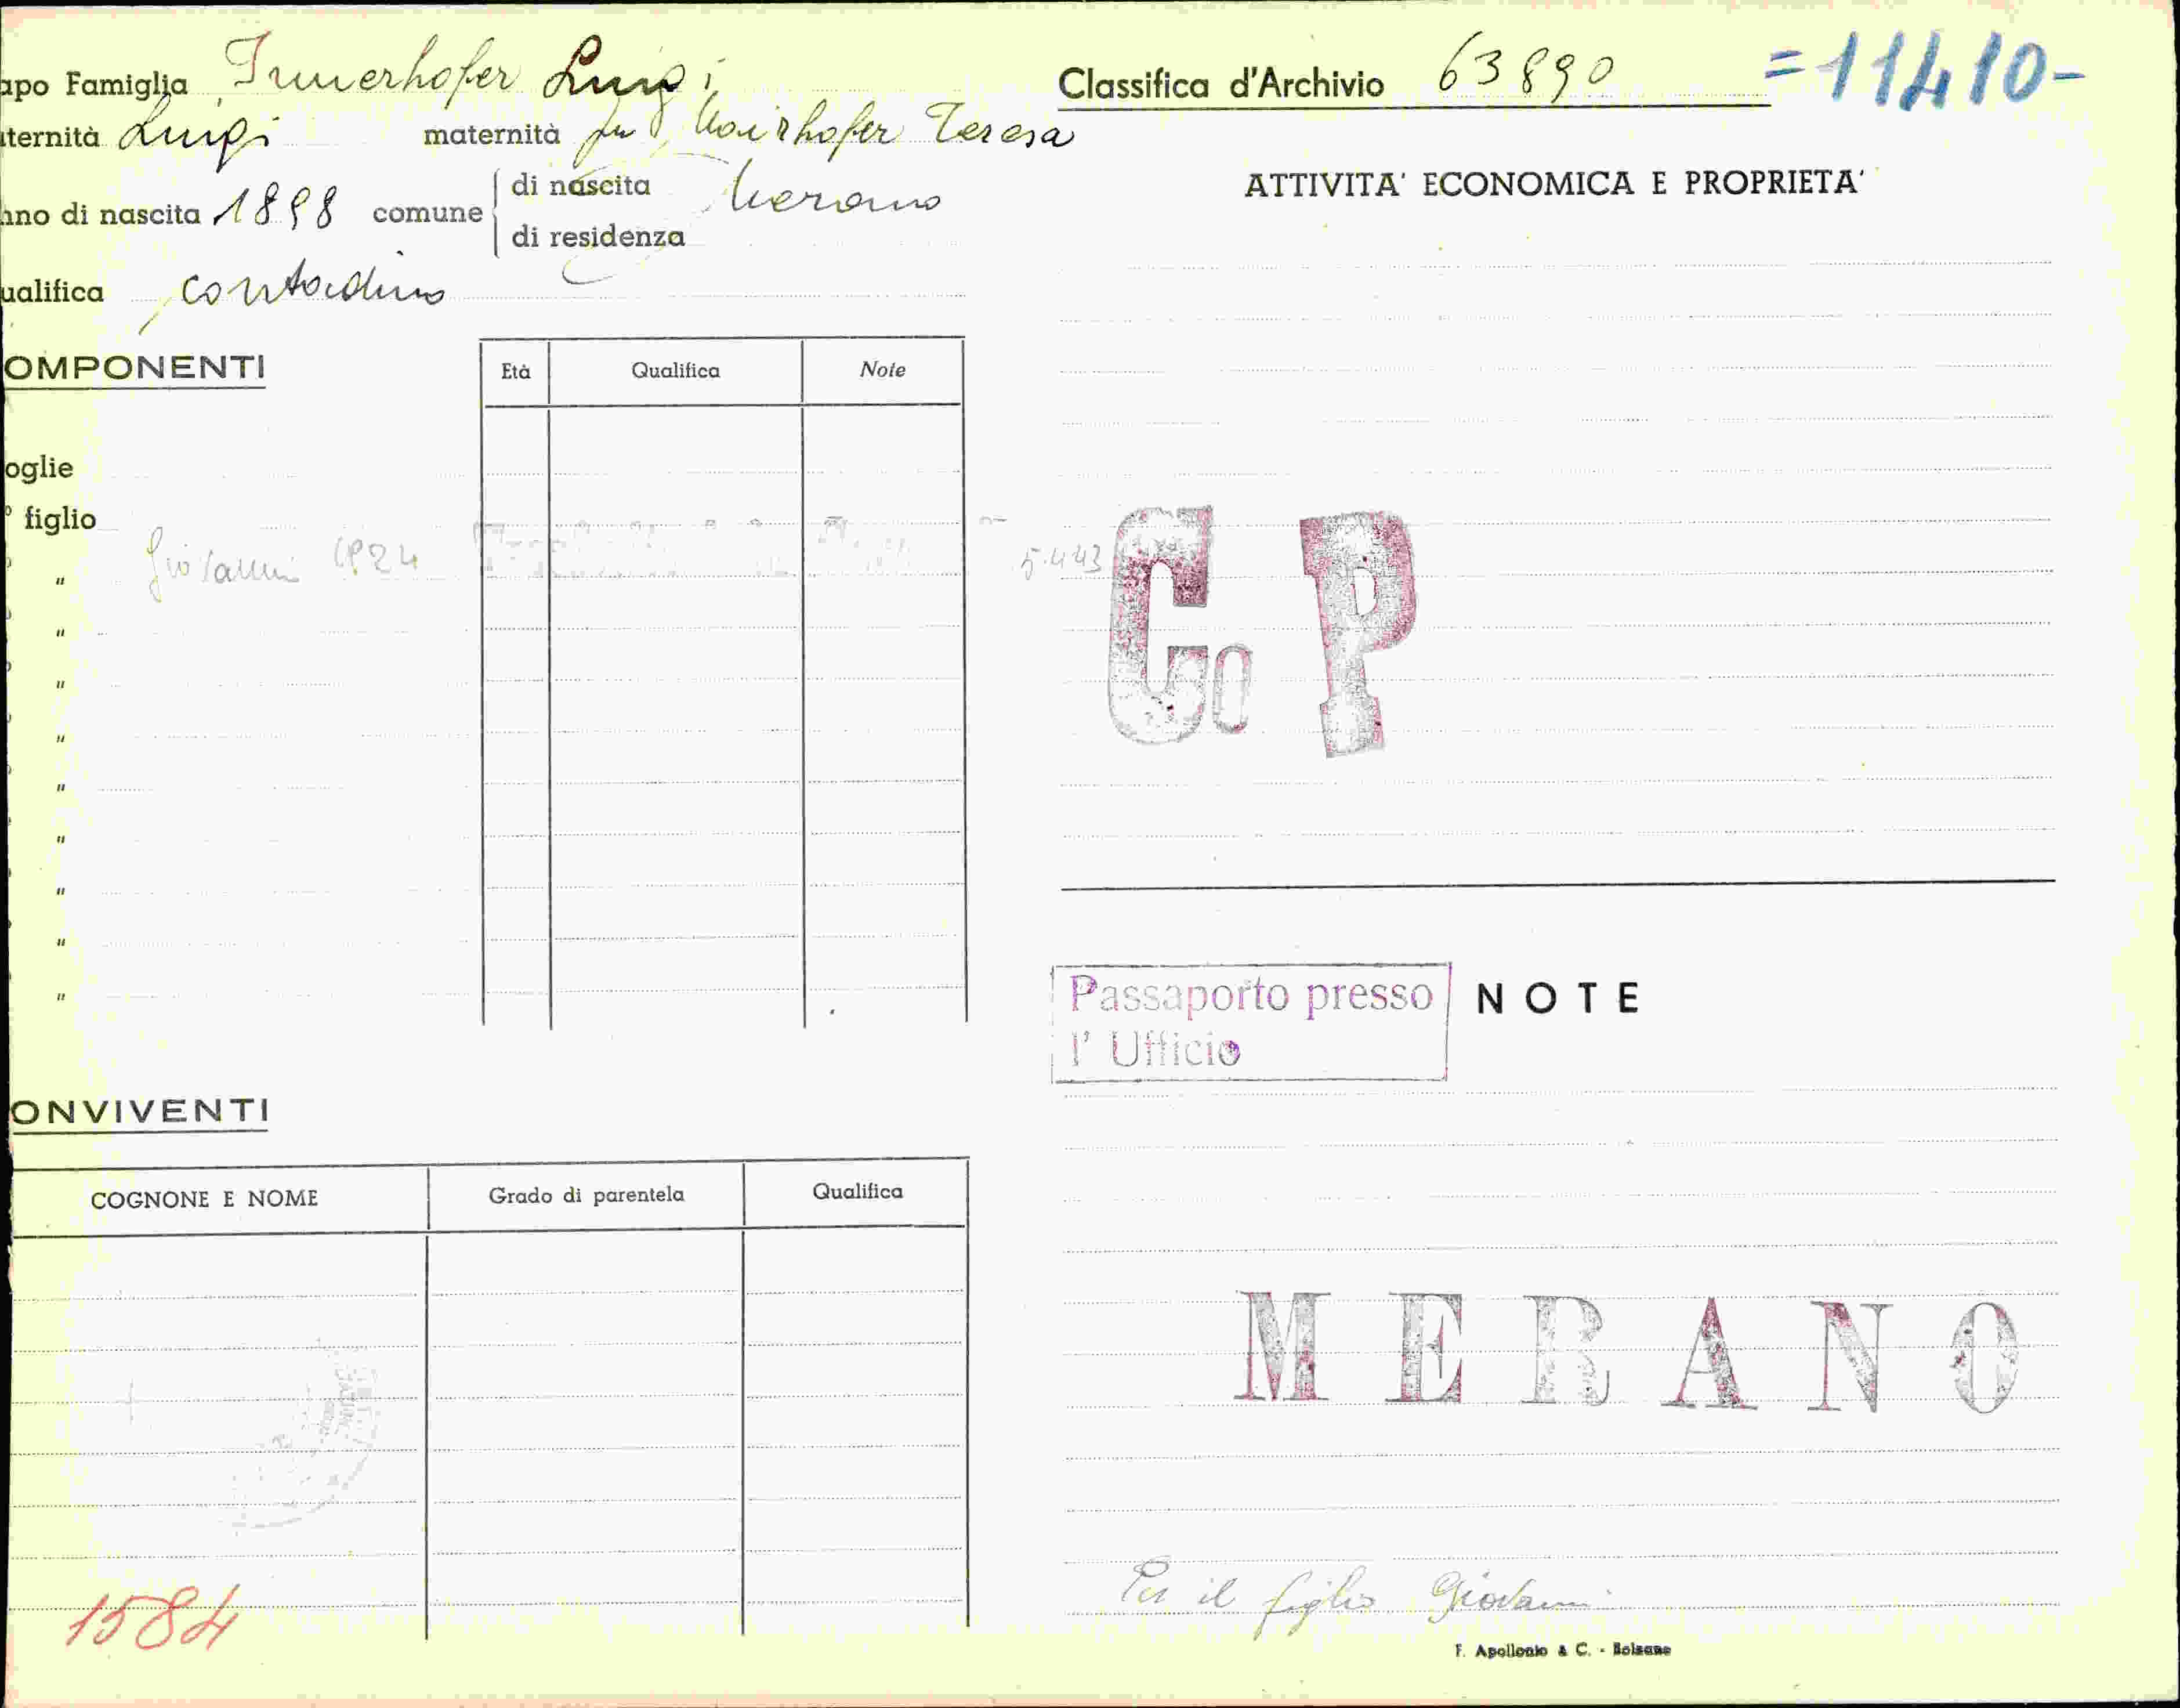 apo Famiglia Innerhofer Luigi
Classifica d'Archivio 63890 =11410-
ternità Luigi maternità fu Mairhofer Teresa
ATTIVITA' ECONOMICA E PROPRIETA'
nno di nascita 1898 comune di nascita Merano
di residenza
ualifica contadino
OMPONENTI
Età Qualifica Note
oglie
° figlio
" Giovanni 1924 5.4.43
"
"
"
"
"
"
"
"
Co P
Passaporto presso
l' Ufficio
NOTE
ONVIVENTI
COGNONE E NOME Grado di parentela Qualifica
MERANO
1584
Per il figlio Giovanni
F. Apollonio & C. - Bolzano